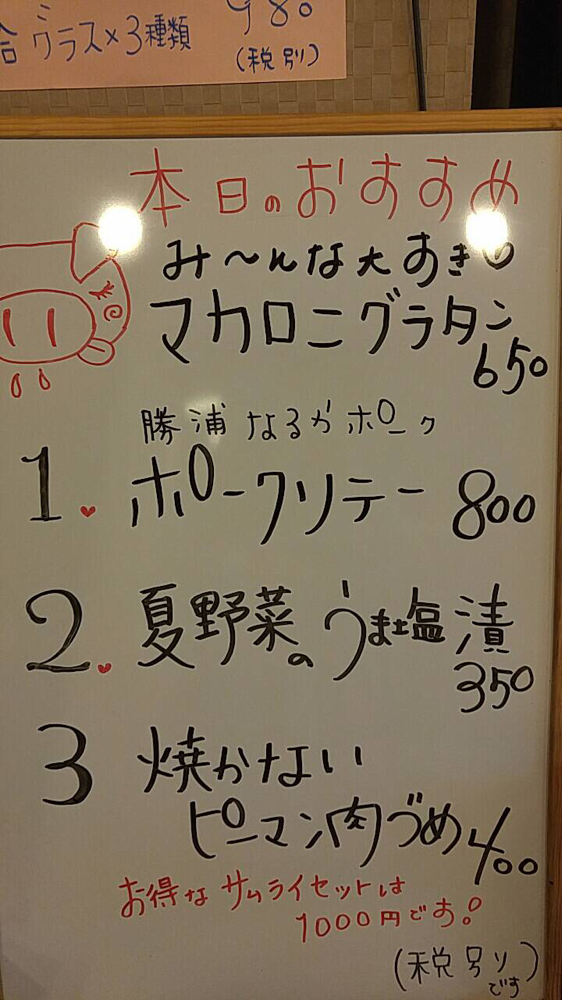 グラス×3種類
980
(税別)
本日のおすすめ
み〜んな大すき♡
マカロニグラタン
650
勝浦なるかポーク
1. ポークソテー 800
2. 夏野菜のうま塩漬
350
3 焼かない
ピーマン肉づめ 400
お得なサムライセットは
1000円です!
(税別)
です